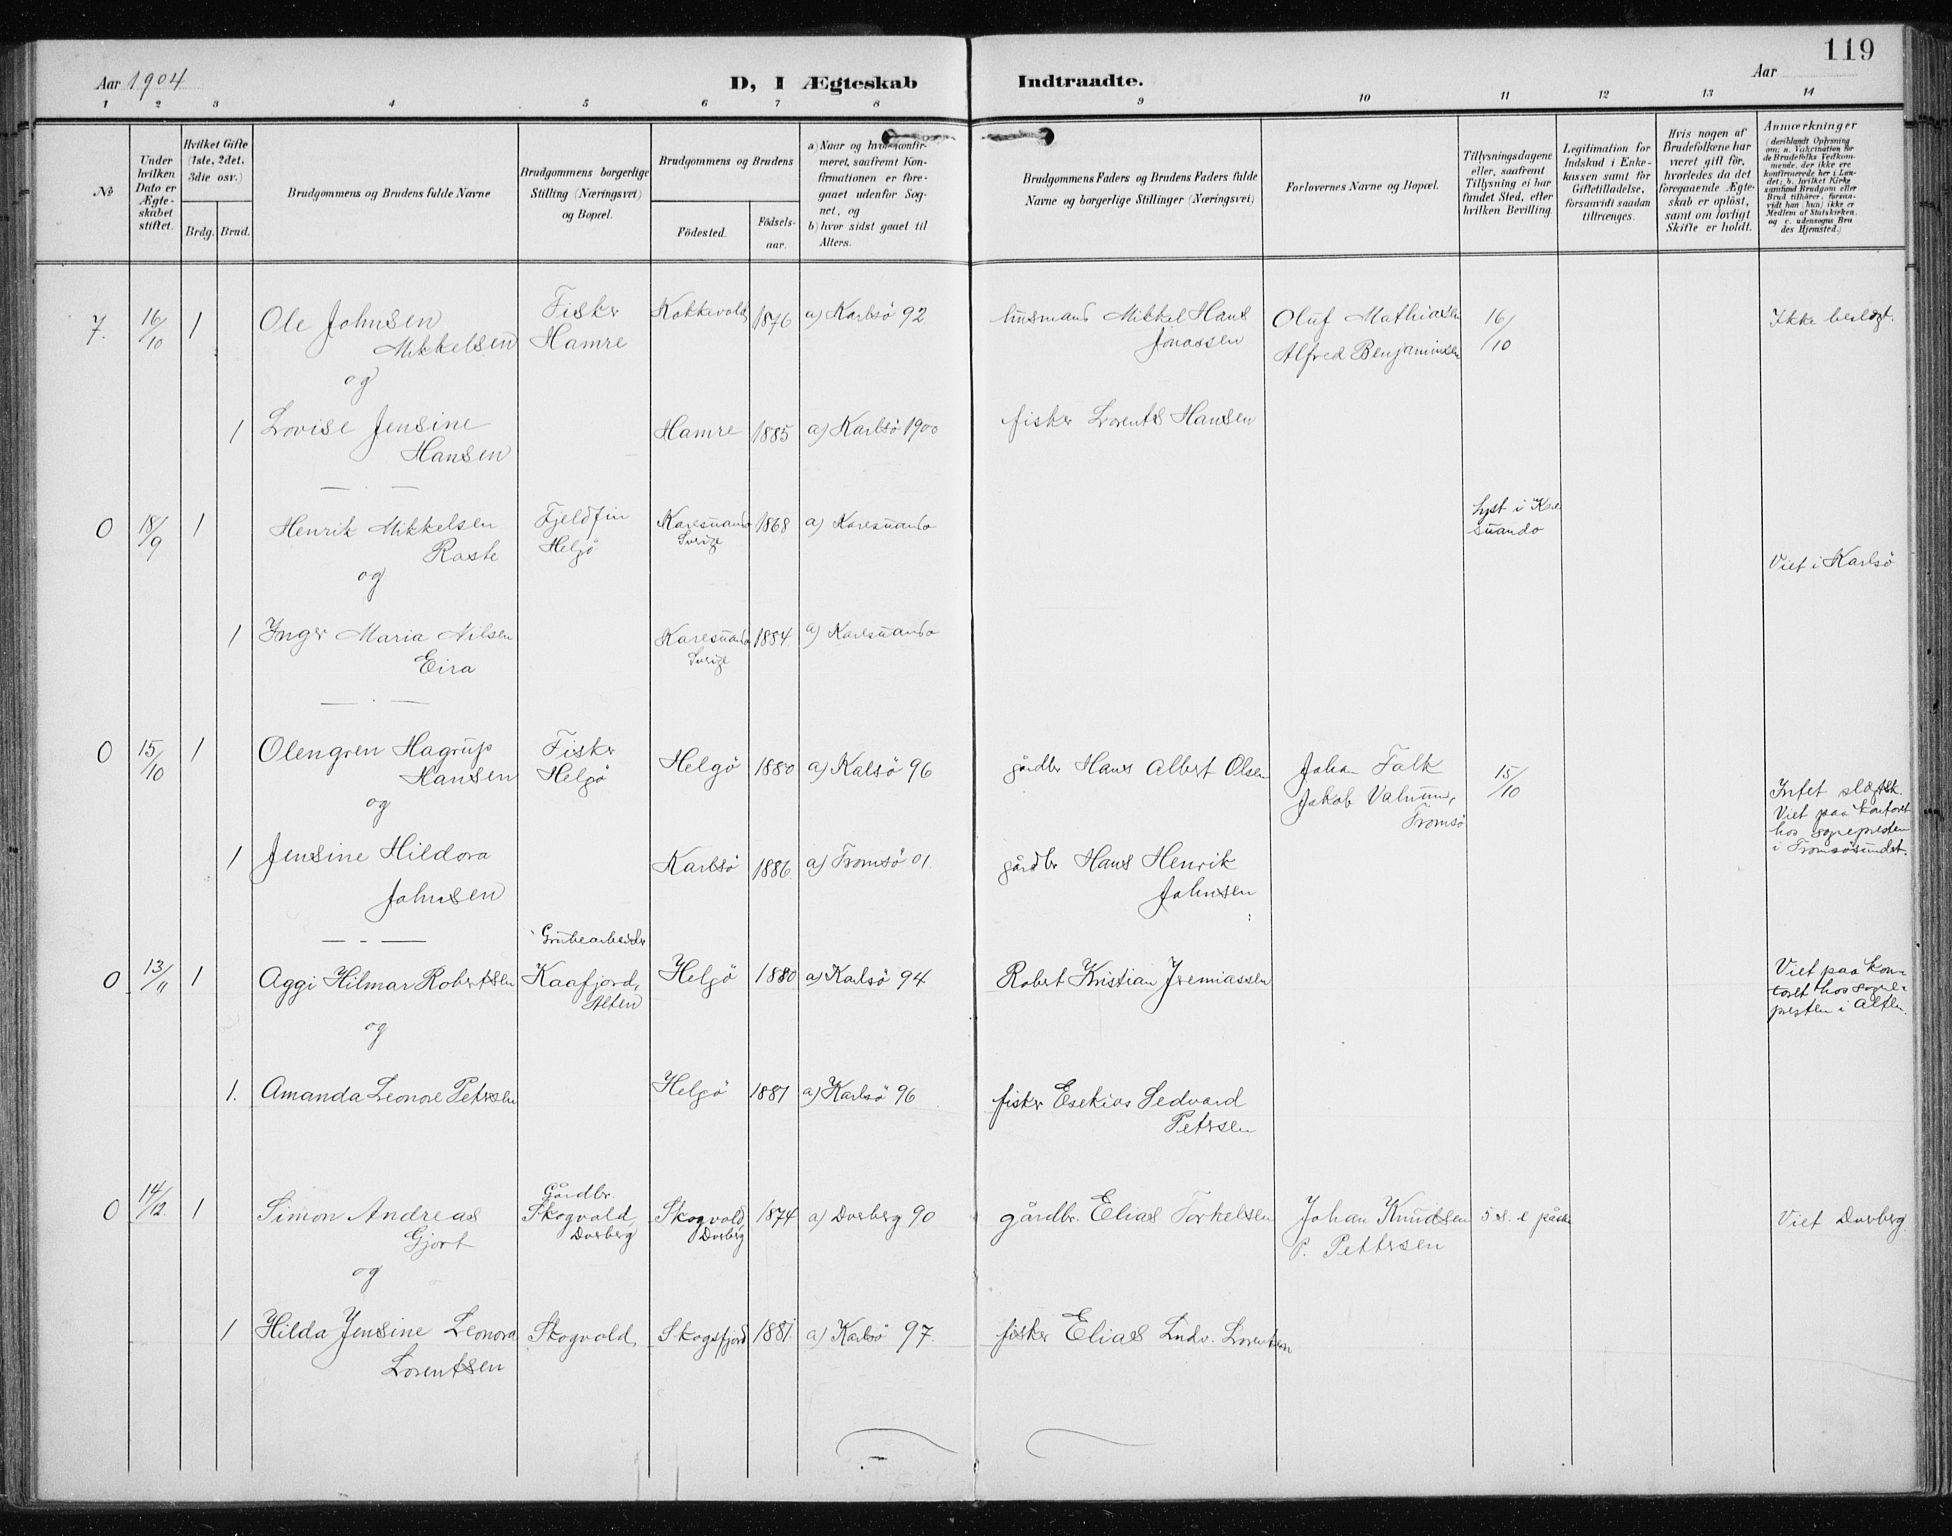 119
Aar 1904
D, I Ægteskab Indtraadte.
Aar
1 2 3 4 5 6 7 8 9 10 11 12 13 14
No
Under hvilken Dato er Ægteskabet stiftet.
Hvilket Gifte (1ste, 2det, 3die osv.)
Brdg. Brud.
Brudgommens og Brudens fulde Navne
Brudgommens borgerlige Stilling (Næringsvei) og Bopæl.
Brudgommens og Brudens
Fødested. Fødsels-aar.
a) Naar og hvor konfirmeret, saafremt Konfirmationen er foregaaet udenfor Sognet, og
b) hvor sidst gaaet til Alters.
Brudgommens Faders og Brudens Faders fulde Navne og borgerlige Stillinger (Næringsvei)
Forlovernes Navne og Bopæl.
Tillysningsdagene eller, saafremt Tillysning ei har fundet Sted, efter hvilken Bevilling.
Legitimation for Indskud i Enkekassen samt for Giftetilladelse, forsaavidt saadan tiltrænges.
Hvis nogen af Brudefolkene har været gift før, hvorledes da det foregaaende Ægteskab er opløst, samt om lovligt Skifte er holdt.
Anmærkninger
(deriblandt Oplysning om: a. Vakcination for de Brudefolks Vedkommende, der ikke ere konfirmerede her i Landet; b. hvilket Kirkesamfund Brudgom eller Brud tilhører, forsaavidt han (hun) ikke er Medlem af Statskirken, og c. udensogns Brudes Hjemsted.)
7. 16/10 1 Ole Johnsen Mikkelsen Fisker Hamre Kokkevold 1876 a) Karlsö 92. husmand Mikkel Hans Jonassen Oluf Mathiasen Alfred Benjaminsen 16/10 Ikke beslegt.
og
1 Lovise Jensine Hansen Hamre 1885 a) Karlsö 1900 fisker Lorents Hansen
0 18/9 1 Henrik Mikkelsen Raste Fjeldfin Helgö Karesuando Sverige 1868 a) Karesuando Lyst i Karesuando Viet i Karlsö
og
1 Inger Maria Nilsen Eira Karesuando Sverige 1884. a) Karesuando
0 15/10 1 Olengren Hagrup Hansen Fisker Helgö Helgö 1880 a) Kalsö 96 gårdbr Hans Albert Olsen Johan Falk Jakob Tromsö 15/10 Intet slægtsk. Viet paa kontoret hos sognepresten i Tromsösundet.
og
1 Jensine Hildora Johnsen Karlsö 1886. a) Tromsö 01. gårdbr Hans Henrik Johnsen
0 13/11 1 Aggi Hilmar Robertsen Grubearbeider Kaafjord, Alten Helgö 1880 a) Karlsö 94 Robert Kristian Jremiassen Viet paa kontoret hos sognepresten i Alten.
og
1. Amanda Leonore Petersen Helgö 1881 a) Karlsö 96 fisker Esekias Sedvard Petersen
0 14/12. 1 Simon Andreas Gjort Gårdbr. Skogvold, Dverberg Skogvold, Dverberg 1874 a) Dverberg 90 gårdbr. Elias Torkelsen Johan Knudsen P. Pettersen 5 s. e påske Viet Dverberg.
og
1 Hilda Jensine Leonora Lorentsen Skogvold, Skogsfjord 1881. a) Karlsö 97. fisker Elias Ludv. Lorentsen